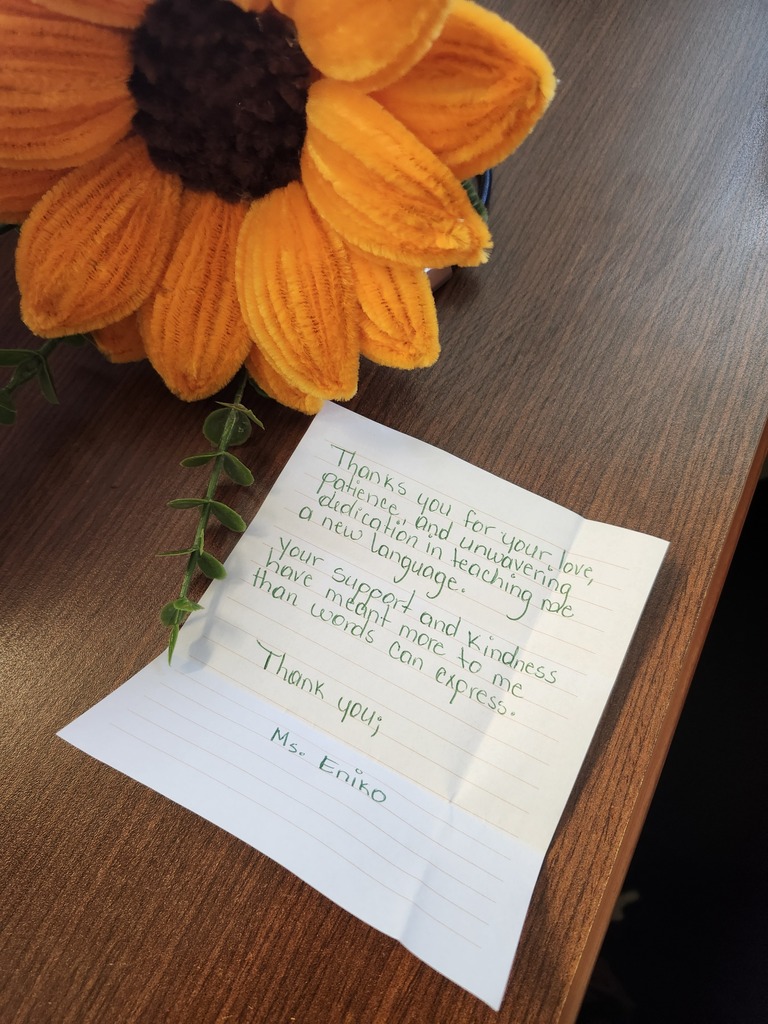 Thanks you for your love,
patience, and unwavering
dedication in teaching me
a new language.
Your support and kindness
have meant more to me
than words can express.
Thank you;
Ms. Eniko